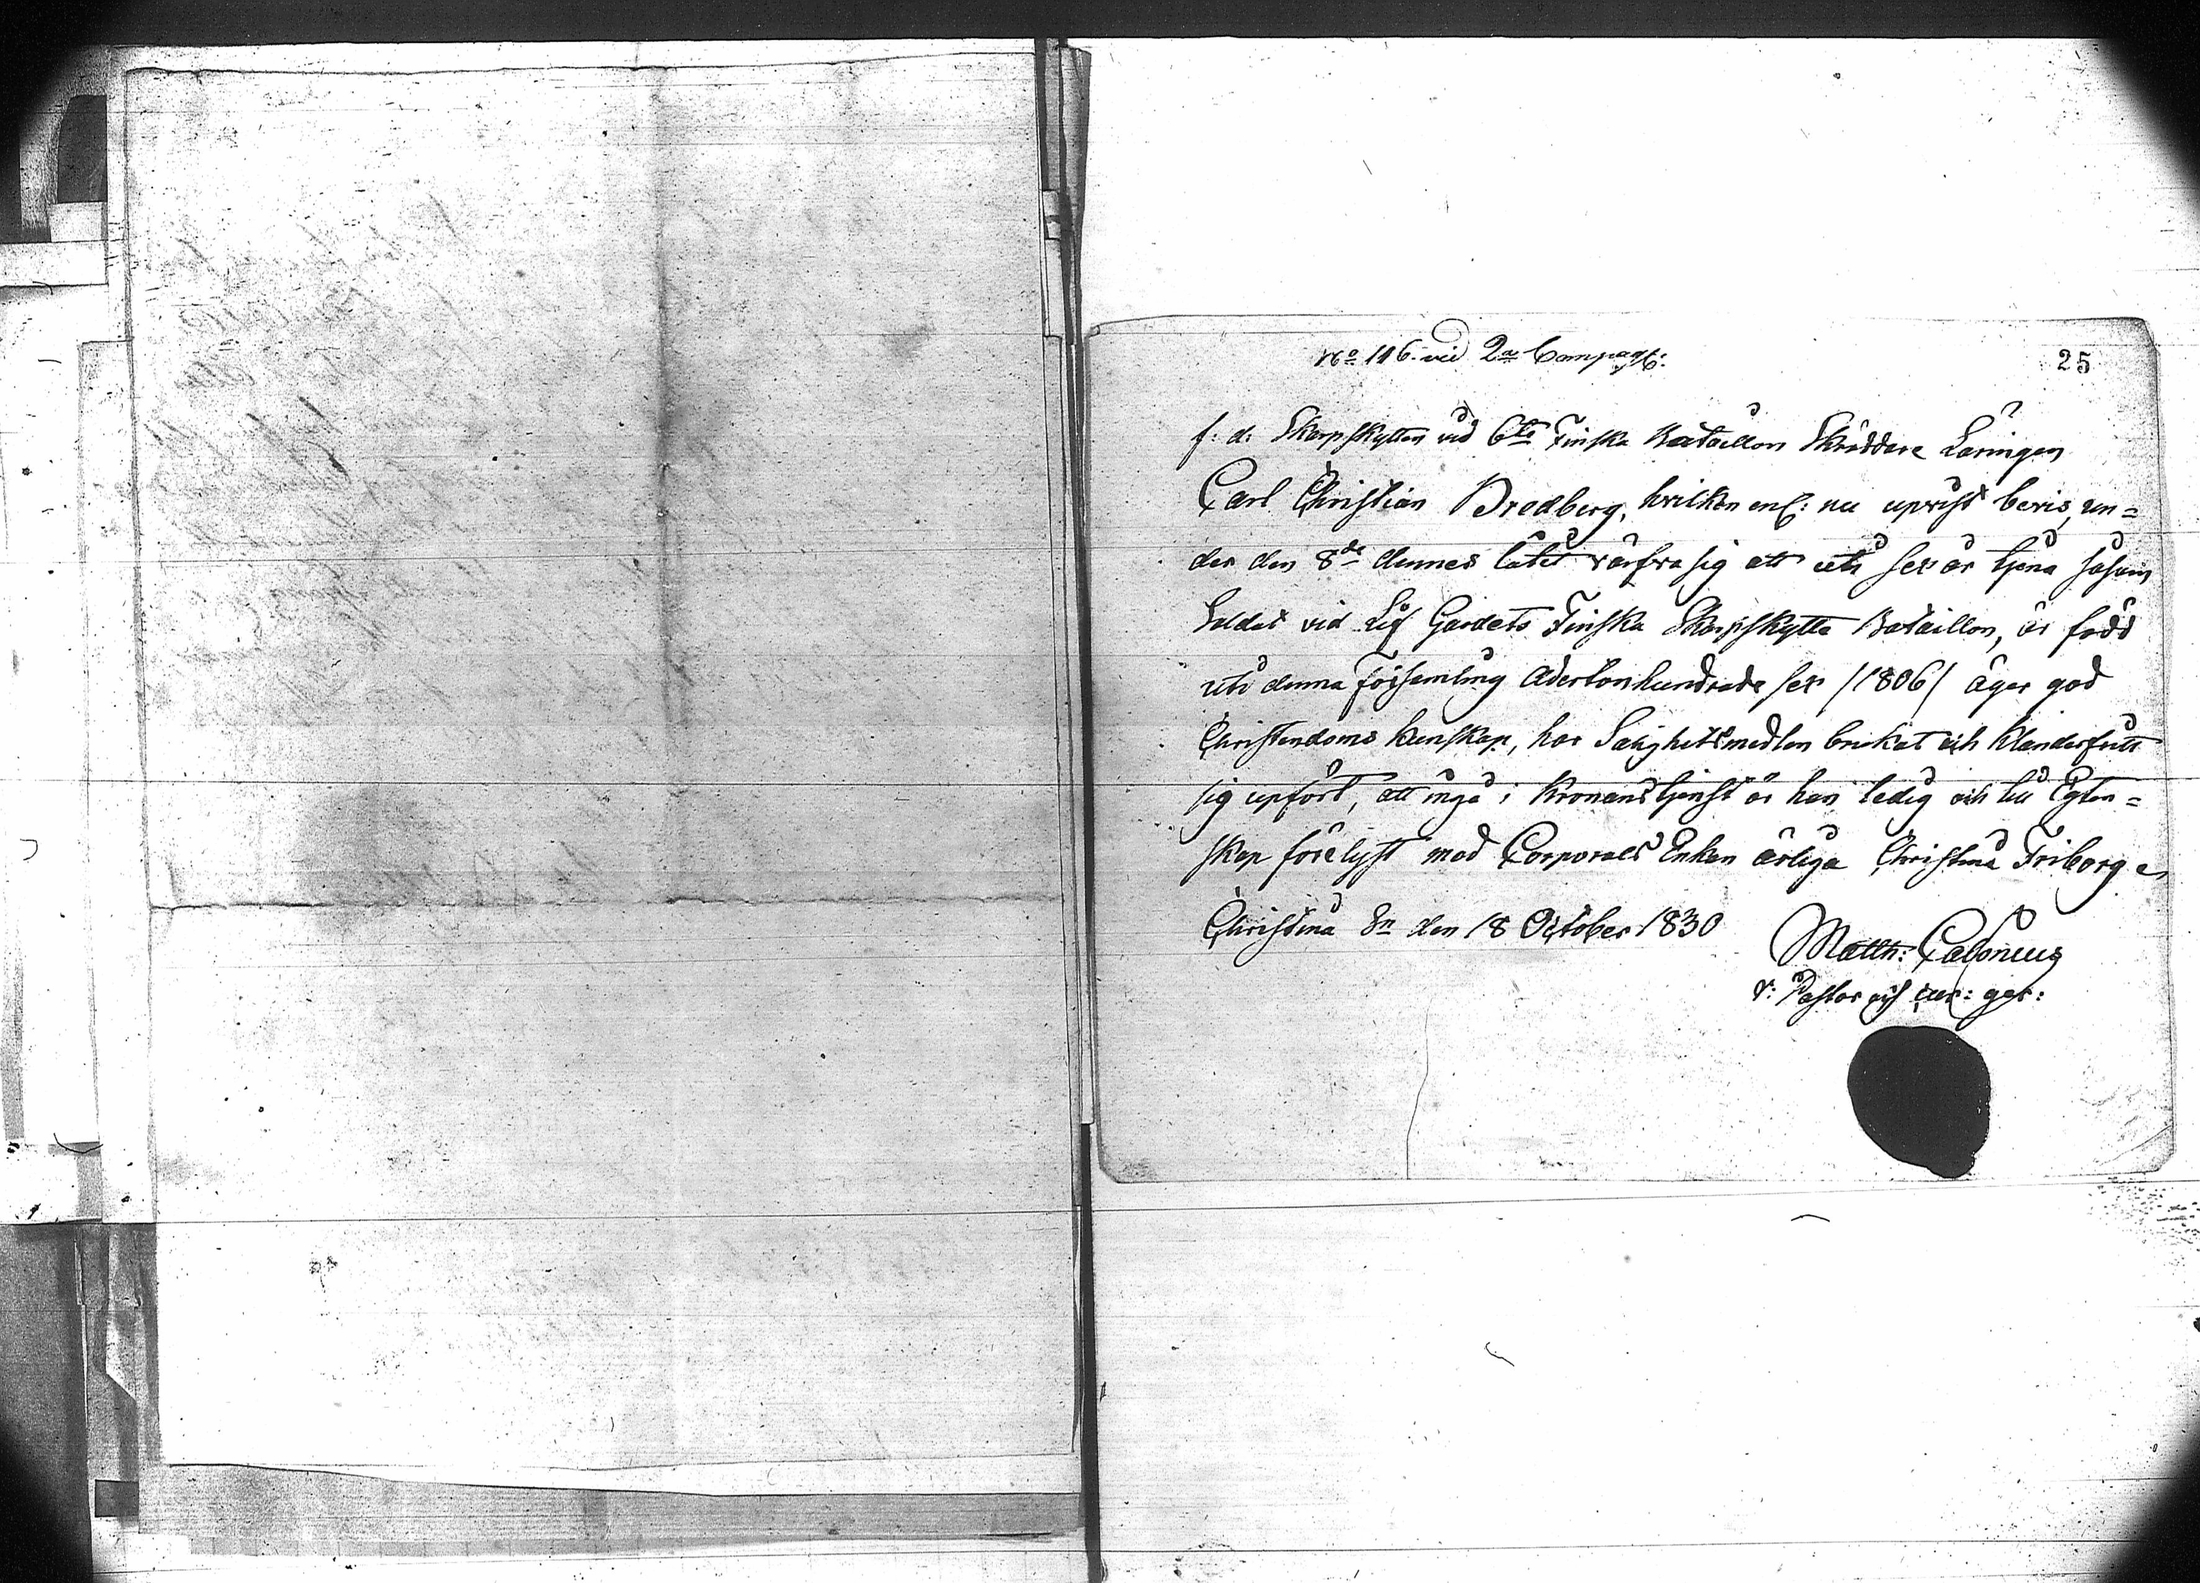 No 116. vid 2a Compagt:
25
f: d: Skarpskytten vid 6te Finska Bataillon Skräddare Läringen
Carl Christian Bredberg, hvilken enl: nu upvist bevis, un=
der den 8de dennes låtit värfva sig att uti sex år tjena såsom
Soldat vid Lif Gardets Finska Skarpskytte Bataillon, är född
uti denna Församling Adertonhundrade sex /1806/ äger god
Christendoms kunskap, har Salighetsmedlen brukat och klanderfritt
sig upfört, att ingå i Kronans tjenst är han ledig och till Egten=
skap förelyst med Corporals Enkan ärliga Christina Friborg
Christina Sn den 18 October 1830
Matth: Calonius
v: Pastor